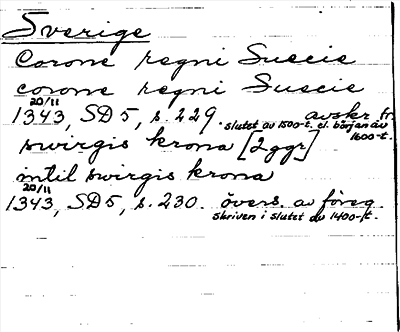 Sverige
Corone regni Suecie
corone regni Suecie
20/11
1343, SD 5, s. 229. avskr. fr.
slutet av 1500-t. el. början av
1600-t.
swirgis krona [2 ggr]
intil swirgis krona
20/11
1343, SD 5, s. 230. övers. av föreg.
skriven i slutet av 1400-t.